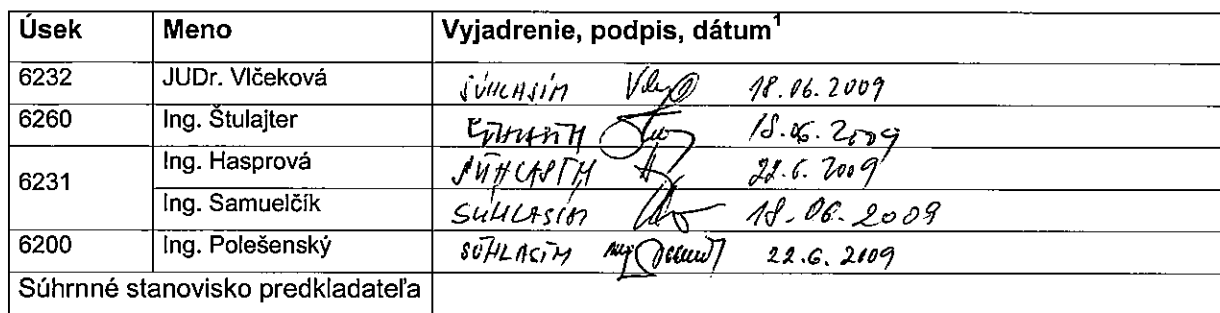 Úsek Meno Vyjadrenie, podpis, dátum¹
6232 JUDr. Vlčeková SÚHLASÍM 18.06.2009
6260 Ing. Štulajter SÚHLASÍM 18.06.2009
6231 Ing. Hasprová SÚHLASÍM 22.6.2009
Ing. Samuelčík SÚHLASÍM 18.06.2009
6200 Ing. Polešenský SÚHLASÍM 22.6.2009
Súhrnné stanovisko predkladateľa